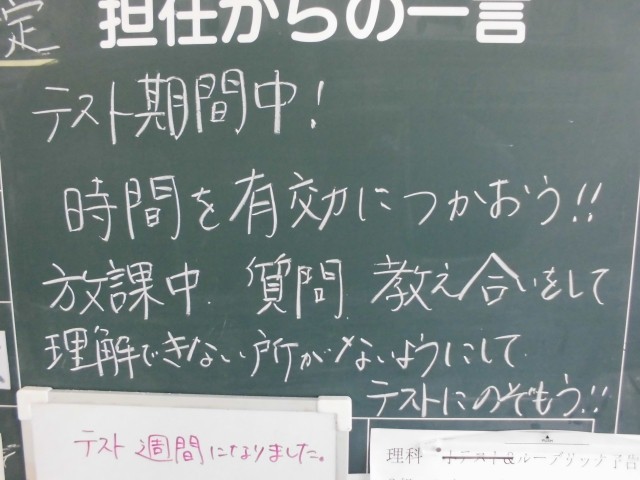 定
担任からの一言
テスト期間中!
時間を有効につかおう!!
放課中、質問、教え合いをして
理解できない所がないようにして
テストにのぞもう!!
テスト週間になりました。
理科 小テスト&ルーブリック予告